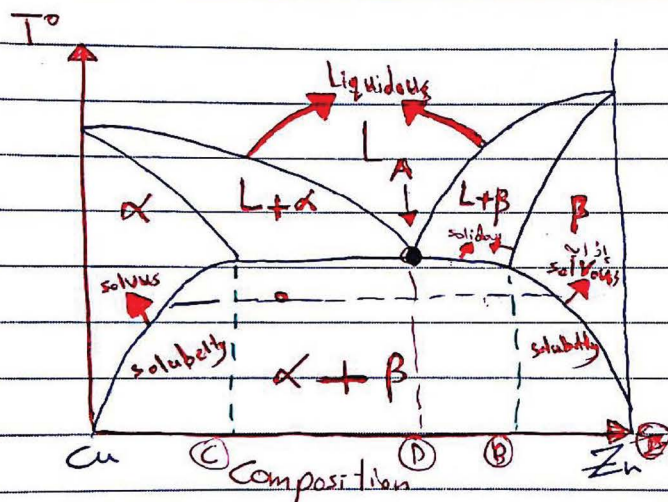 T°
Liquidous
L
A
α
L+α
L+β
β
soliduy
إزابه
solvous
solvus
solubelty
α + β
solubelty
Cu
C
D
B
Zn
Composition